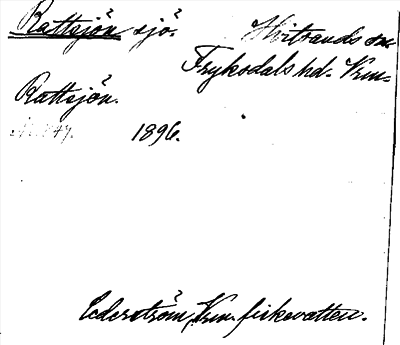 Rattsjön sjö. Hvitsands sn.
Fryksdals hd. Vrm.
Rattsjön.
1896.
Cederström, Vrm. fiskevatten.